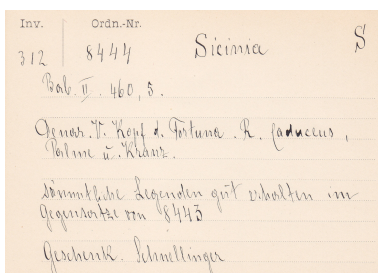 Inv. Ordn.-Nr.
312 8444 Sicinia S
Bab. II. 460, 5.
Denar. V. Kopf d. Fortuna. R. Caduceus,
Palme u. Kranz.
sämmtliche Legenden gut erhalten im
Gegensatze von 8443
Geschenk. Schnellinger